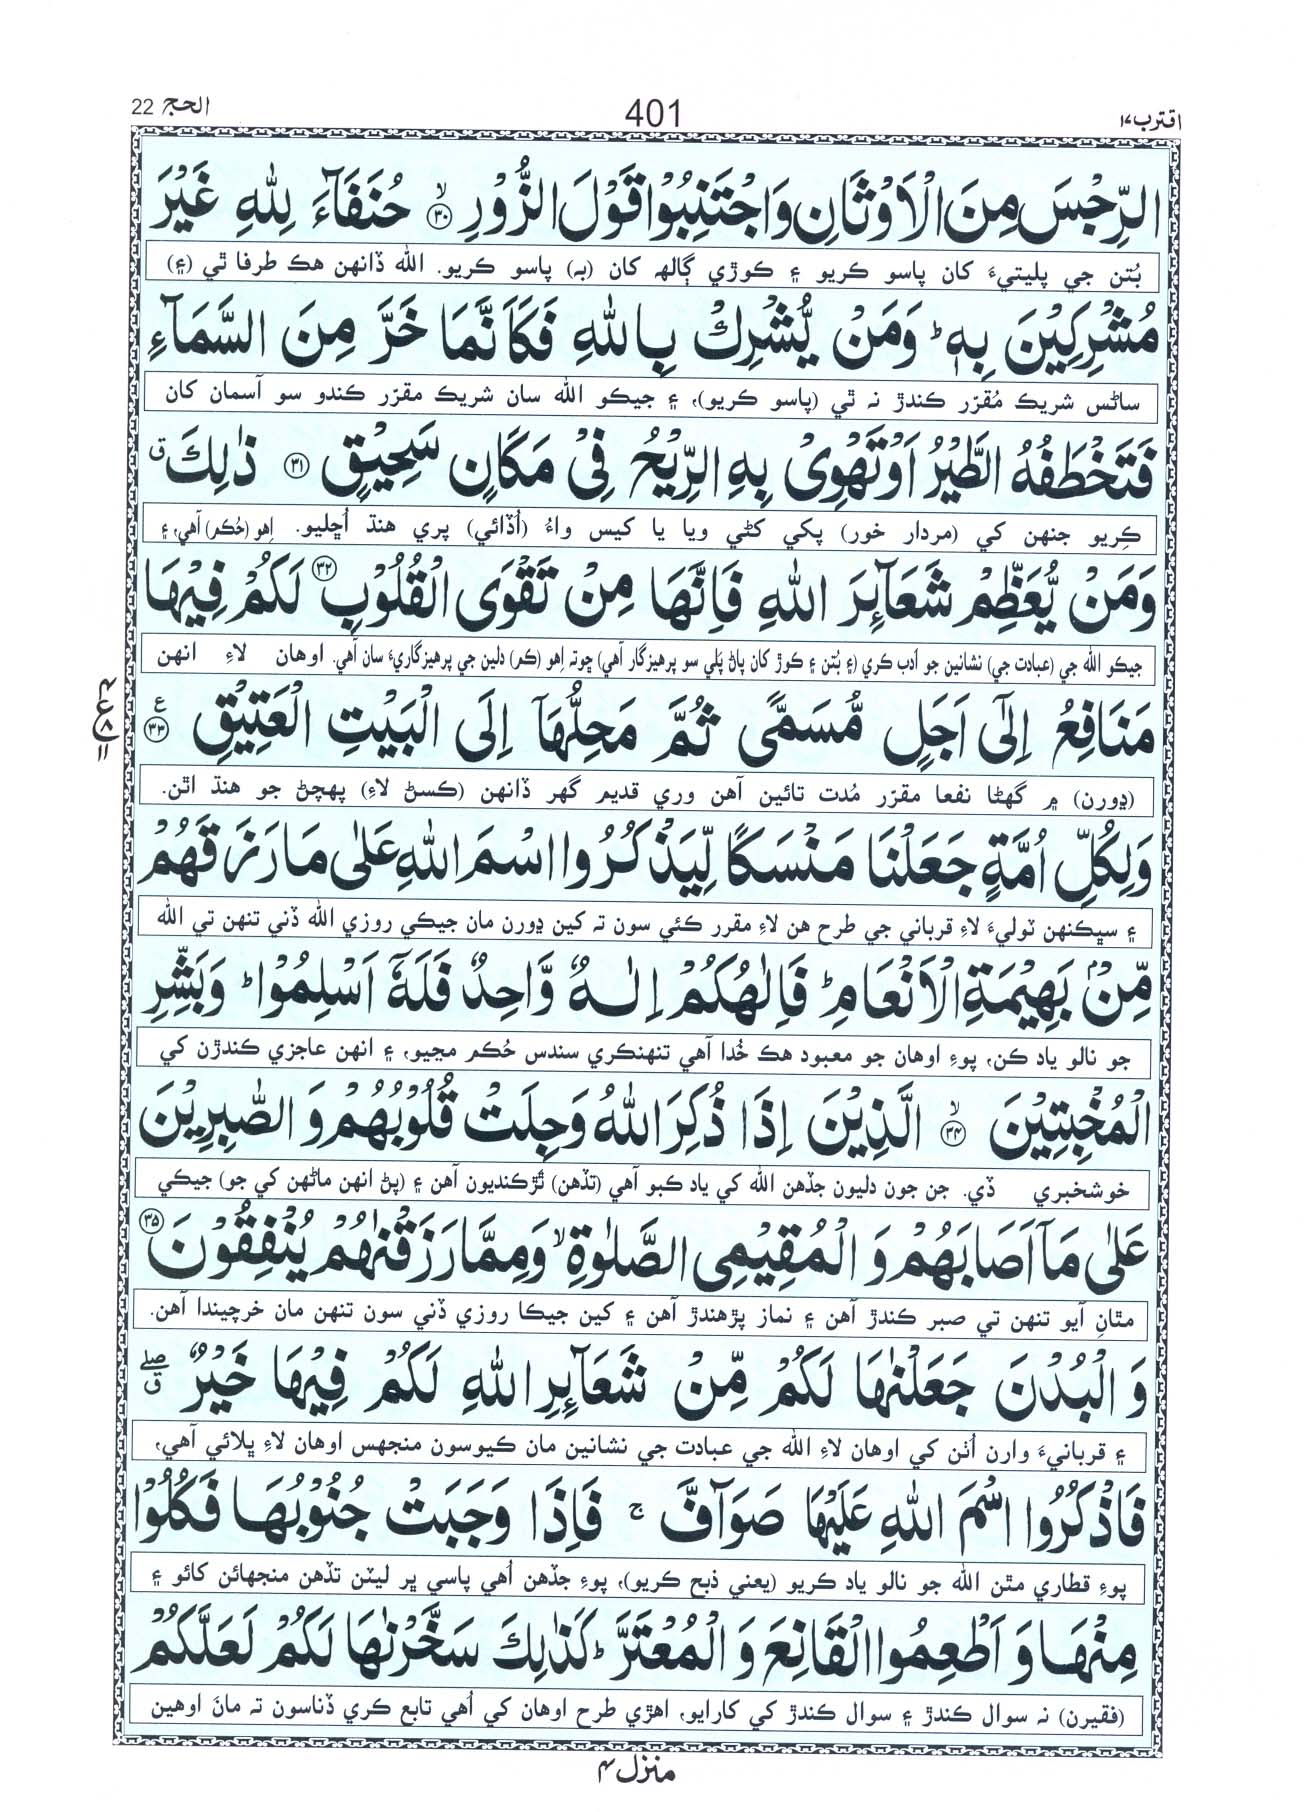 اقترب ١٧
401
الحج 22
الرِّجْسَ مِنَ الْاَوْثَانِ وَاجْتَنِبُوْا قَوْلَ الزُّوْرِ ۙ﴿۳۰﴾ حُنَفَآءَ لِلّٰهِ غَيْرَ
بُتن جي پليتيءَ کان پاسو ڪريو ۽ ڪوڙي ڳالهه کان (به) پاسو ڪريو. الله ڏانهن هڪ طرفا ٿي (۽)
مُشْرِكِيْنَ بِهٖ ؕ وَمَنْ يُّشْرِكْ بِاللّٰهِ فَكَاَنَّمَا خَرَّ مِنَ السَّمَآءِ
ساڻس شريڪ مُقرّر ڪندڙ نہ ٿي (پاسو ڪريو)، ۽ جيڪو الله سان شريڪ مقرّر ڪندو سو آسمان کان
فَتَخْطَفُهُ الطَّيْرُ اَوْ تَهْوِيْ بِهِ الرِّيْحُ فِيْ مَكَانٍ سَحِيْقٍ ﴿۳۱﴾ ذٰلِكَ ۗ
ڪِريو جنهن کي (مردار خور) پکي کڻي ويا يا کيس واءُ (اُڏائي) پري هنڌ اُڇليو. اِهو (حُڪم) آهي، ۽
وَمَنْ يُّعَظِّمْ شَعَآئِرَ اللّٰهِ فَاِنَّهَا مِنْ تَقْوَى الْقُلُوْبِ ﴿۳۲﴾ لَكُمْ فِيْهَا
جيڪو الله جي (عبادت جي) نشانين جو اَدب ڪري (۽ بُتن ۽ ڪوڙ کان پاڻ پَلي سو پرهيزگار آهي) ڇوته اِهو (ڪم) دلين جي پرهيزگاريءَ سان آهي. اوهان لاءِ انهن
مَنَافِعُ اِلٰٓى اَجَلٍ مُّسَمًّى ثُمَّ مَحِلُّهَآ اِلَى الْبَيْتِ الْعَتِيْقِ ﴿۳۳﴾ ع
(ڍورن) ۾ گهڻا نفعا مقرّر مُدت تائين آهن وري قديم گهر ڏانهن (ڪسڻ لاءِ) پهچڻ جو هنڌ اٿن.
وَلِكُلِّ اُمَّةٍ جَعَلْنَا مَنْسَكًا لِّيَذْكُرُوا اسْمَ اللّٰهِ عَلٰى مَا رَزَقَهُمْ
۽ سڀڪنهن ٽوليءَ لاءِ قرباني جي طرح هن لاءِ مقرر ڪئي سون تہ کين ڍورن مان جيڪي روزي الله ڏني تنهن تي الله
مِّنْۢ بَهِيْمَةِ الْاَنْعَامِ ؕ فَاِلٰهُكُمْ اِلٰهٌ وَّاحِدٌ فَلَهٗٓ اَسْلِمُوْا ؕ وَبَشِّرِ
جو نالو ياد ڪن، پوءِ اوهان جو معبود هڪ خُدا آهي تنهنڪري سندس حُڪم مڃيو، ۽ انهن عاجزي ڪندڙن کي
الْمُخْبِتِيْنَ ۙ﴿۳۴﴾ الَّذِيْنَ اِذَا ذُكِرَ اللّٰهُ وَجِلَتْ قُلُوْبُهُمْ وَالصّٰبِرِيْنَ
خوشخبري ڏي. جن جون دليون جڏهن الله کي ياد ڪبو آهي (تڏهن) ٿڙڪنديون آهن ۽ (پڻ انهن ماڻهن کي جو) جيڪي
عَلٰى مَآ اَصَابَهُمْ وَالْمُقِيْمِي الصَّلٰوةِ ۙ وَمِمَّا رَزَقْنٰهُمْ يُنْفِقُوْنَ ﴿۳۵﴾
مٿانِ آيو تنهن تي صبر ڪندڙ آهن ۽ نماز پڙهندڙ آهن ۽ کين جيڪا روزي ڏني سون تنهن مان خرچيندا آهن.
وَالْبُدْنَ جَعَلْنٰهَا لَكُمْ مِّنْ شَعَآئِرِ اللّٰهِ لَكُمْ فِيْهَا خَيْرٌ ۖۗ
۽ قربانيءَ وارن اُٺن کي اوهان لاءِ الله جي عبادت جي نشانين مان ڪيوسون منجهس اوهان لاءِ ڀلائي آهي،
فَاذْكُرُوا اسْمَ اللّٰهِ عَلَيْهَا صَوَآفَّ ۚ فَاِذَا وَجَبَتْ جُنُوْبُهَا فَكُلُوْا
پوءِ قطاري مٿن الله جو نالو ياد ڪريو (يعني ذبح ڪريو)، پوءِ جڏهن اُهي پاسي ڀر ليٽن تڏهن منجهائن کائو ۽
مِنْهَا وَاَطْعِمُوا الْقَانِعَ وَالْمُعْتَرَّ ؕ كَذٰلِكَ سَخَّرْنٰهَا لَكُمْ لَعَلَّكُمْ
(فقيرن) نہ سوال ڪندڙ ۽ سوال ڪندڙ کي کارايو، اهڙي طرح اوهان کي اُهي تابع ڪري ڏناسون تہ مانَ اوهين
منزل ۴